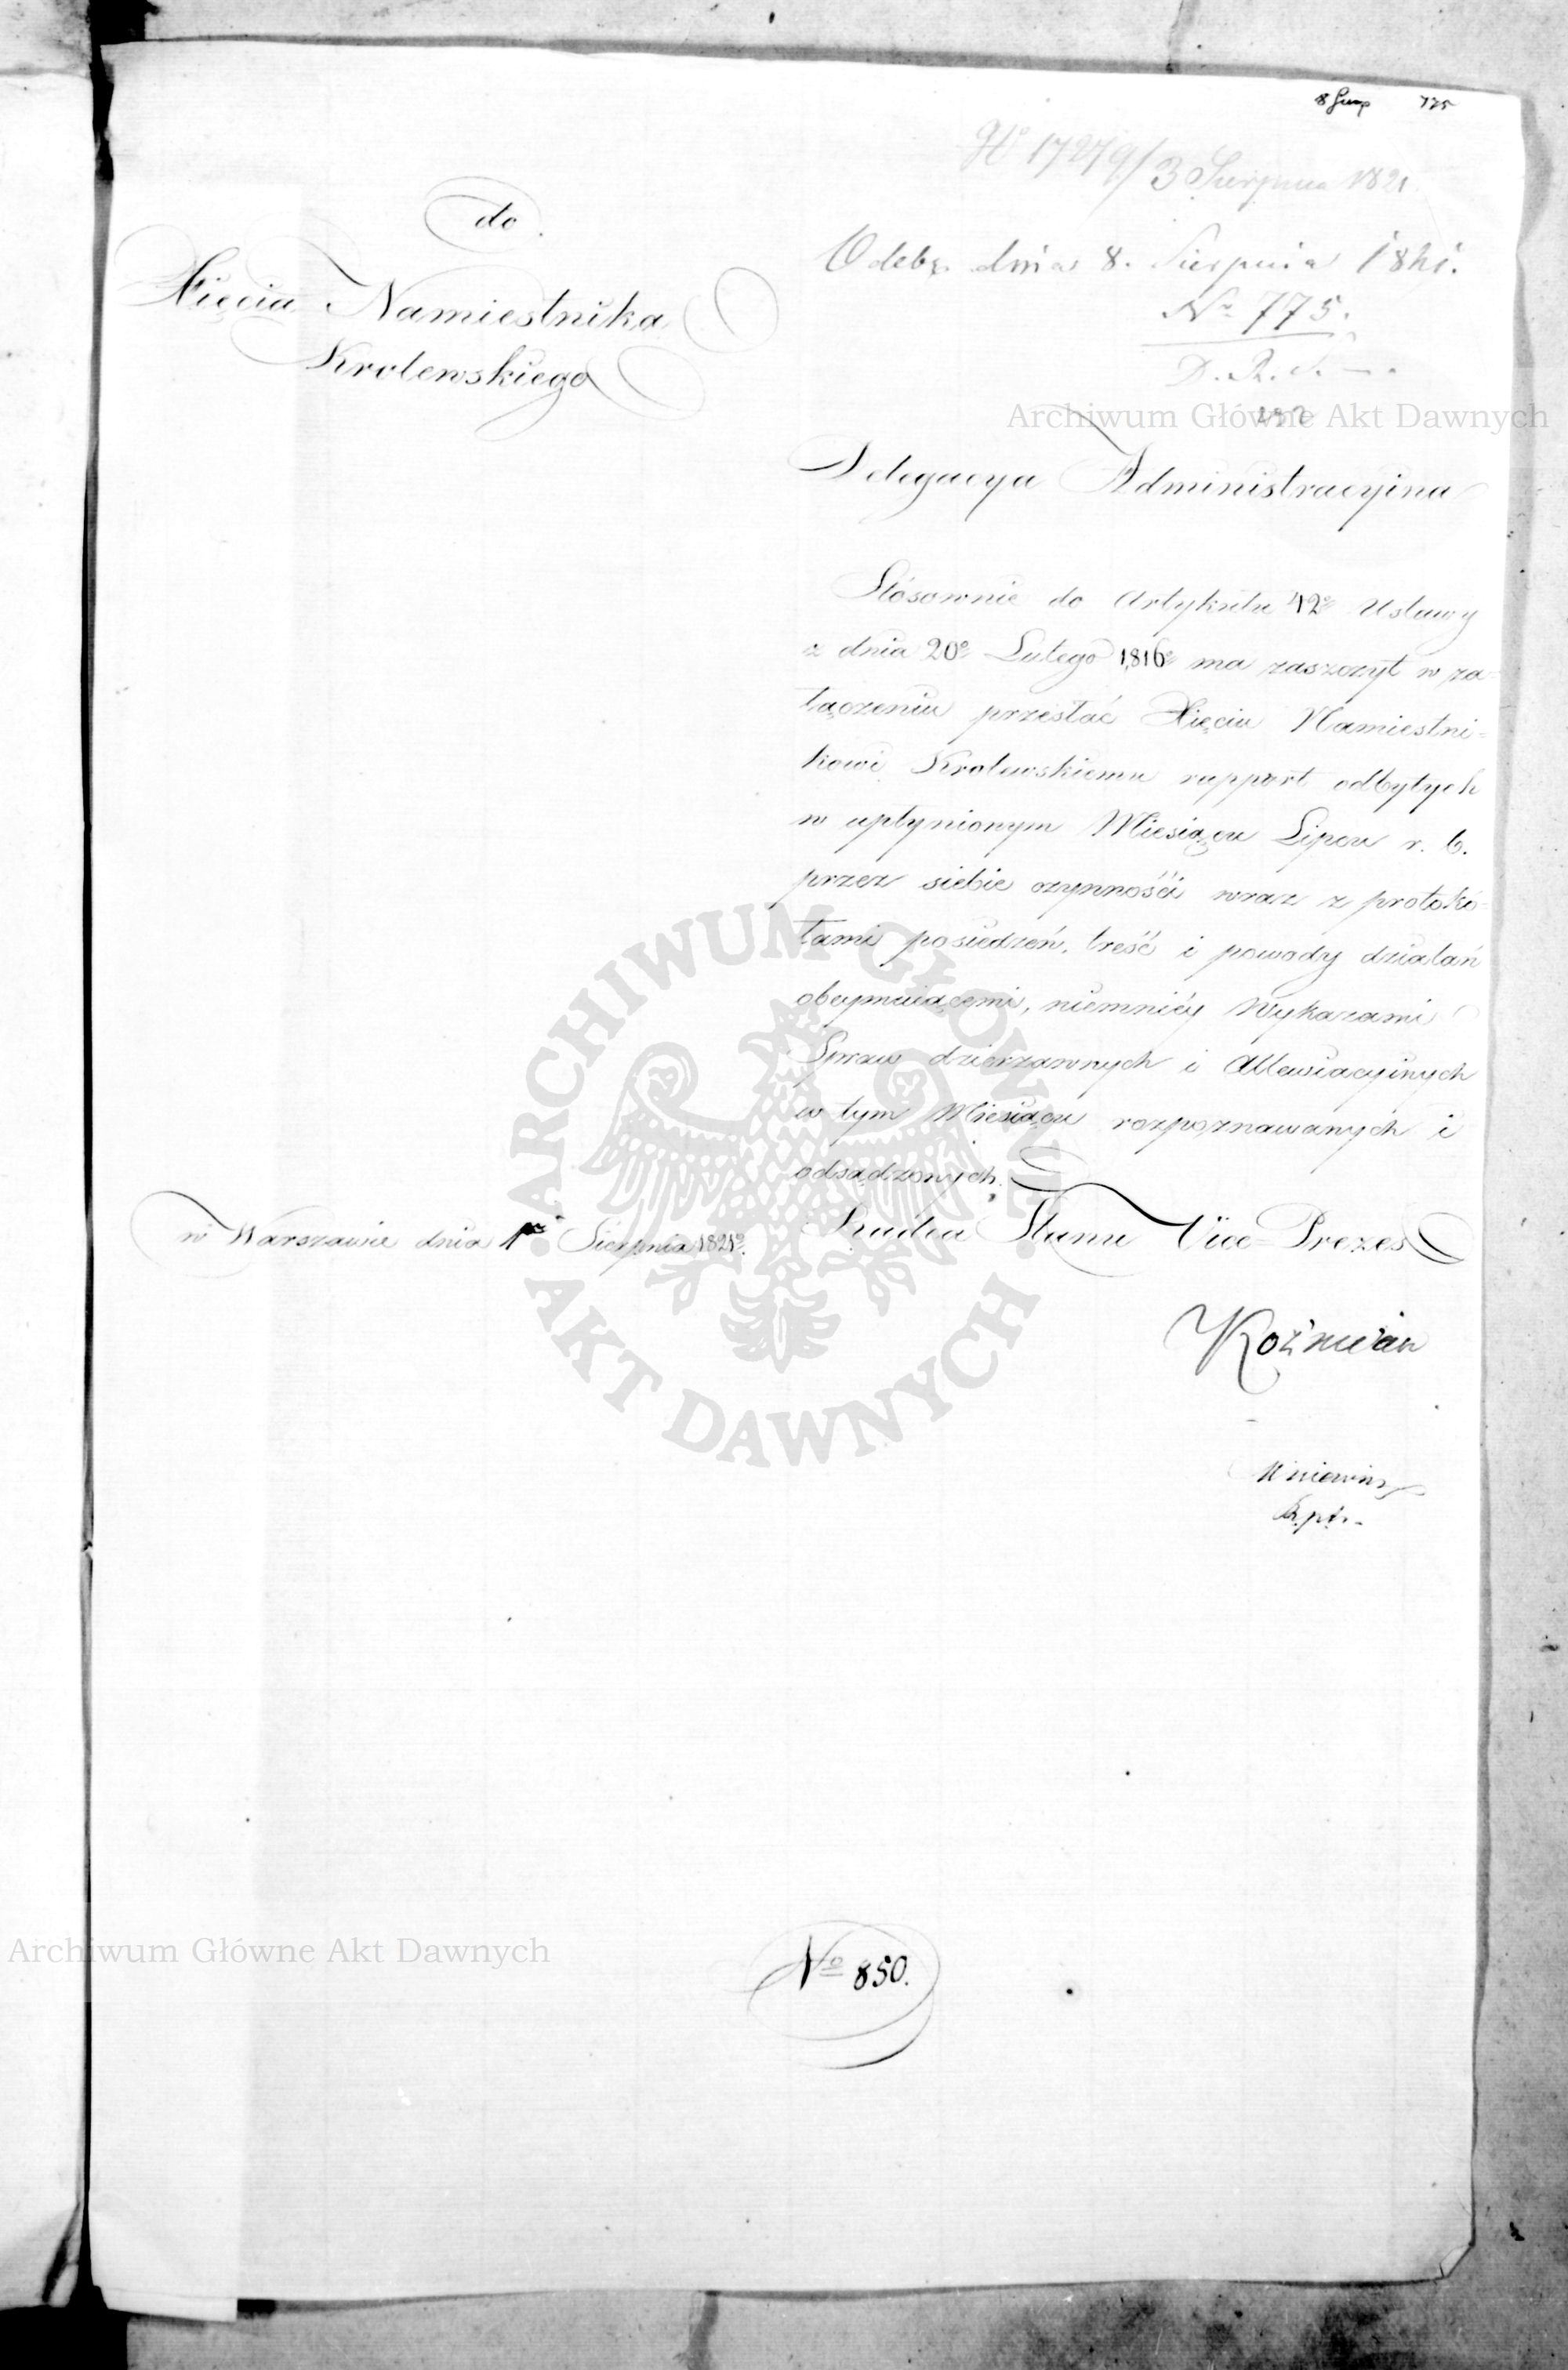 8 Sierp 775
No 17279/3 Sierpnia 1821.
Odebr. dnia 8. Sierpnia 1821.
No 775.
D. R. S.
do
Xięcia Namiestnika
Krolewskiego
Archiwum Główne Akt Dawnych
Delegacya Administracyina
Stósownie do Artykułu 42o Ustawy
z dnia 20o Lutego 1816o ma zaszczyt w za=
łączeniu przesłać Xięciu Namiestni=
kowi Krolewskiemu rapport odbytych
w upłynionym Miesiącu Lipcu r. b.
przez siebie czynności wraz z protokó=
łami posiedzeń, treść i powody działań
obeymuiącemi, niemniéy Wykazami
Spraw dzierzawnych i Allewiacyinych
w tym Miesiącu rozpoznawanych i
odsądzonych.
w Warszawie dnia 1go Sierpnia 1821o.
Radca Stanu Vice=Prezes
Koźmian
No 850.
ARCHIWUM GŁÓWNE
AKT DAWNYCH
Archiwum Główne Akt Dawnych